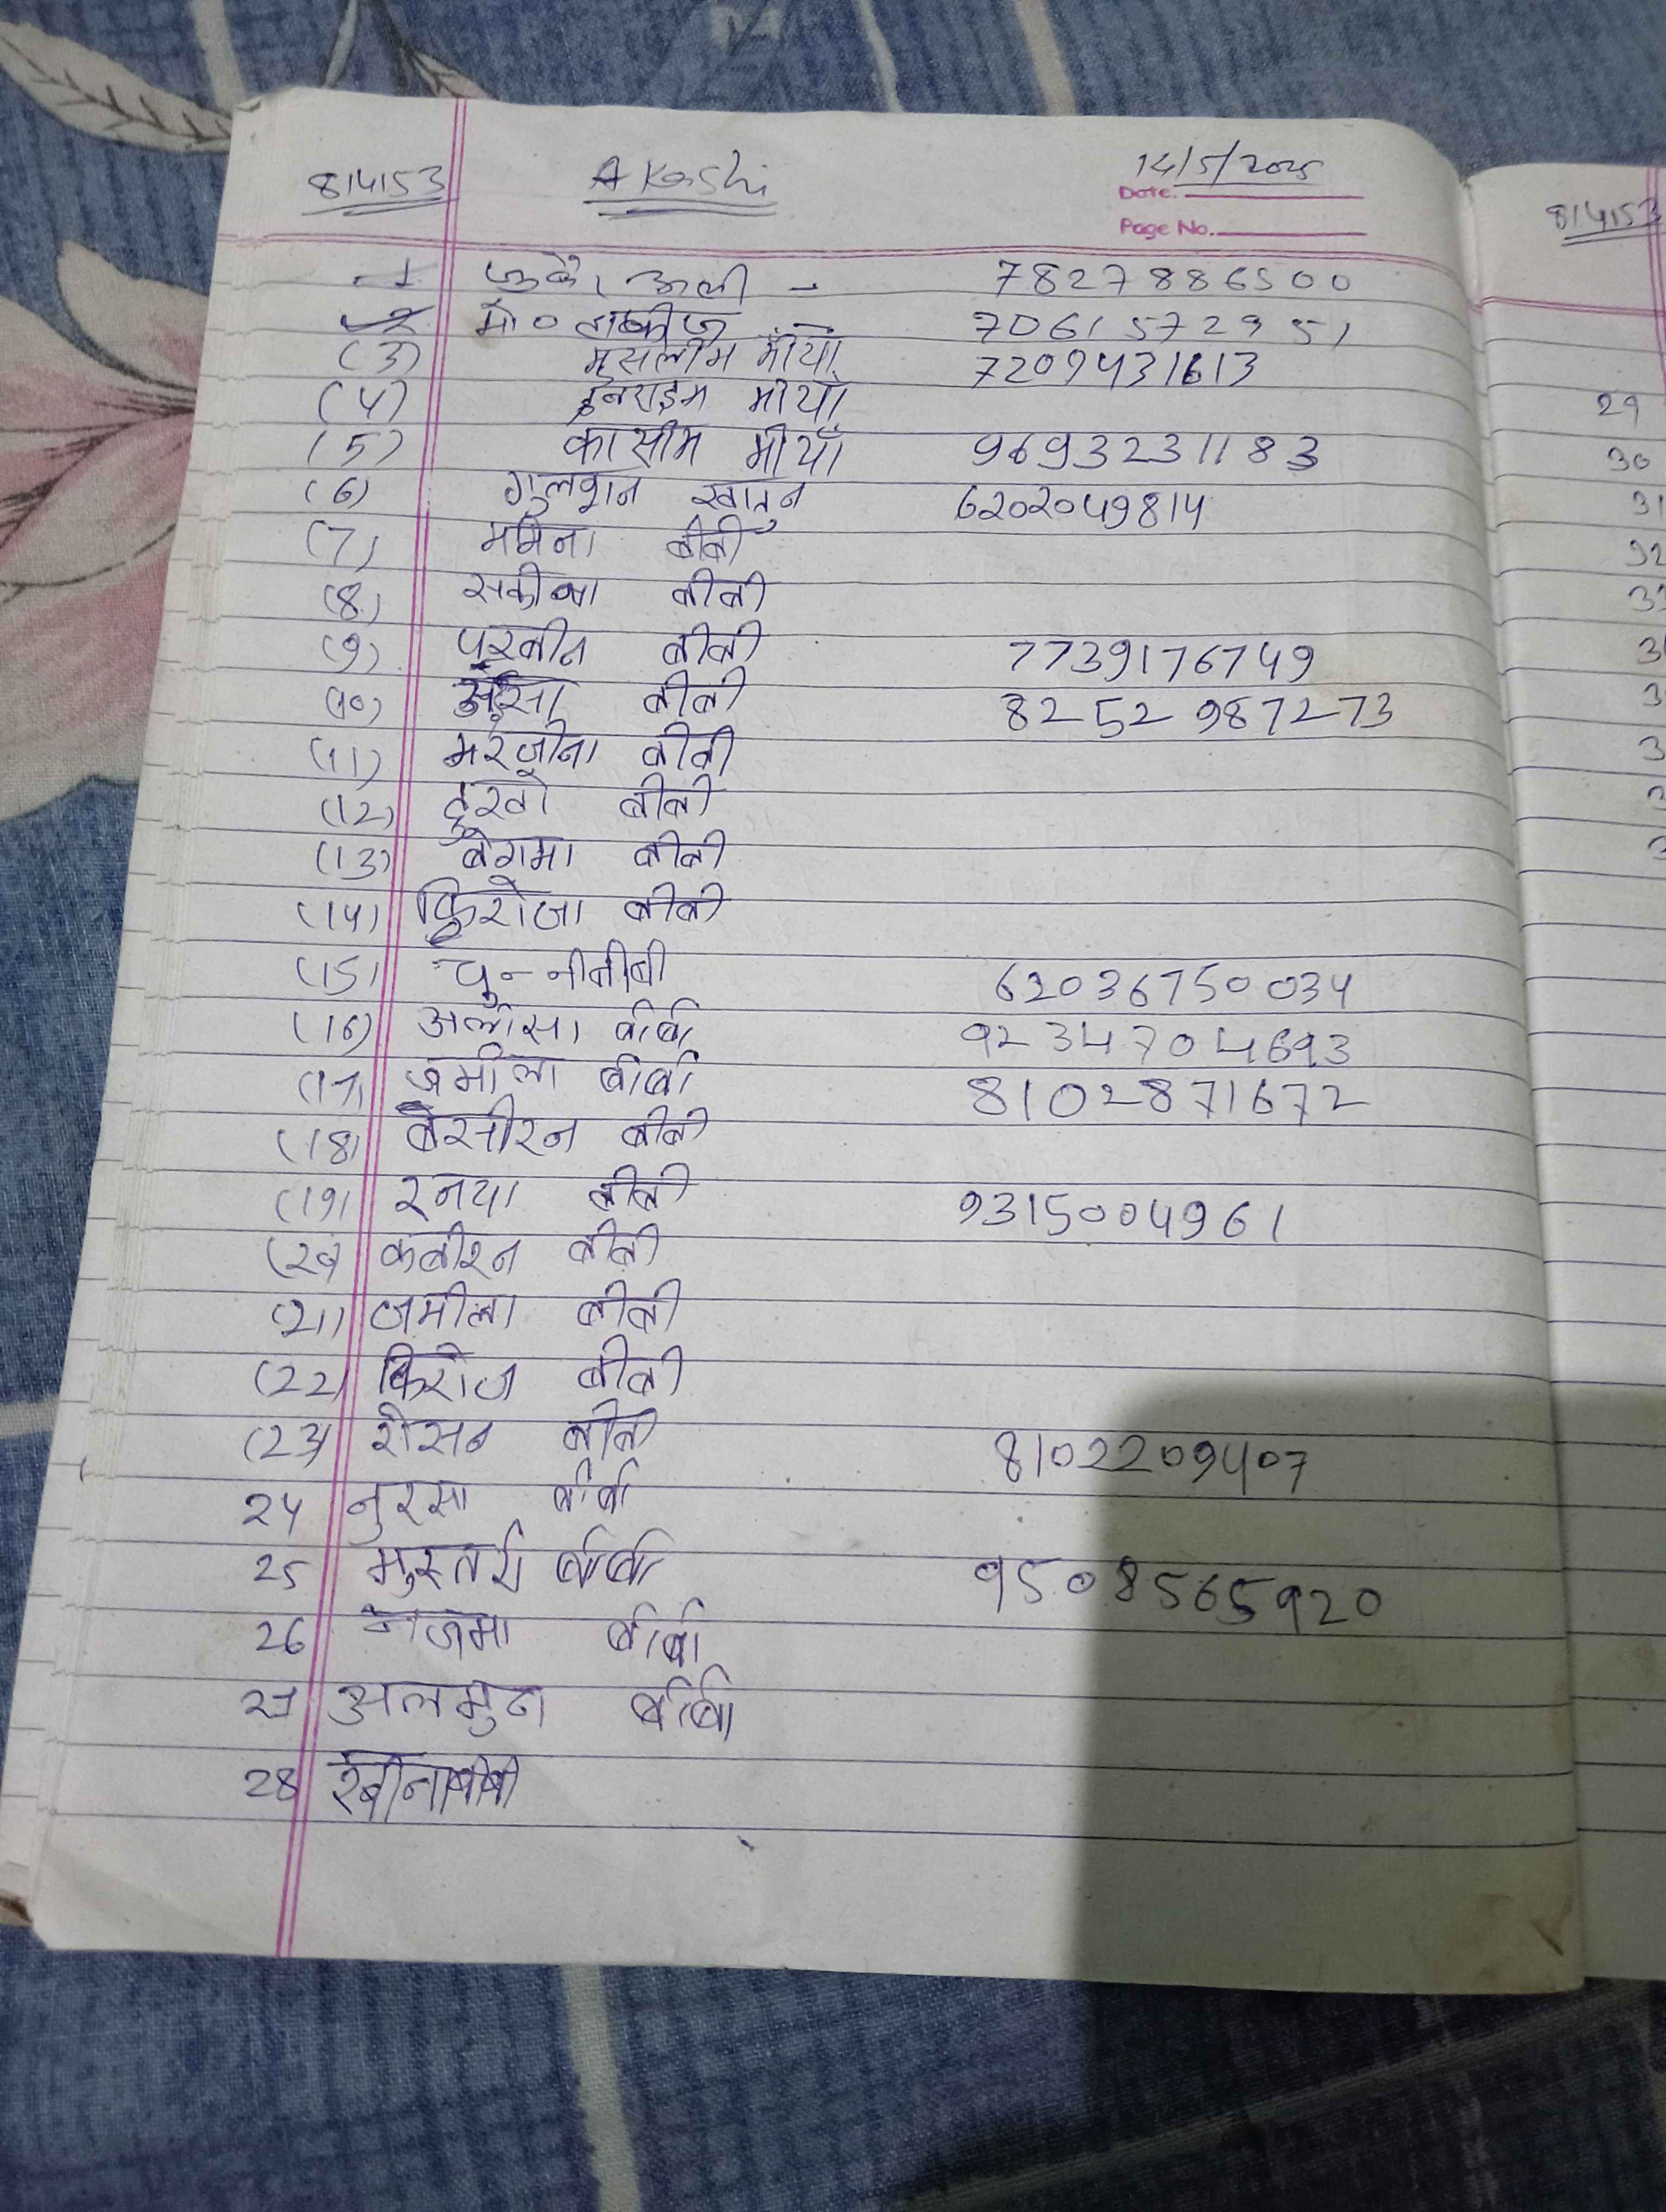 814153 Akashi 14/5/2025
Date.
Page No.
1 अली - 7827886500
2 मो० 7061572951
(3) मुसलीम मीयाँ 7209431613
(4) इबराइम मीयाँ
(5) कासीम मीयाँ 9693231183
(6) गुलशन खातुन 6202049814
(7) ममिना बीबी
(8) सकीना बीबी
(9) परबीन बीबी 7739176749
(10) बीबी 8252987273
(11) मरजीना बीबी
(12) बीबी
(13) बेगमा बीबी
(14) फिरोजा बीबी
(15) चुन्नीबीबी 62036750034
(16) अलीसा बीबी 9234704693
(17) जमीला बीबी 8102871672
(18) बेसीरन बीबी
(19) रनया बीबी 9315004961
(20) कबीरन बीबी
(21) जमीला बीबी
(22) फिरोज बीबी
(23) रोसन बीबी 8102209407
24 नुरसा बीबी
25 मुस्तरी बीबी 9508565920
26 नजमा बीबी
27 अलमुन बीबी
28 रबीनाबीबी
814153
29
30
31
32